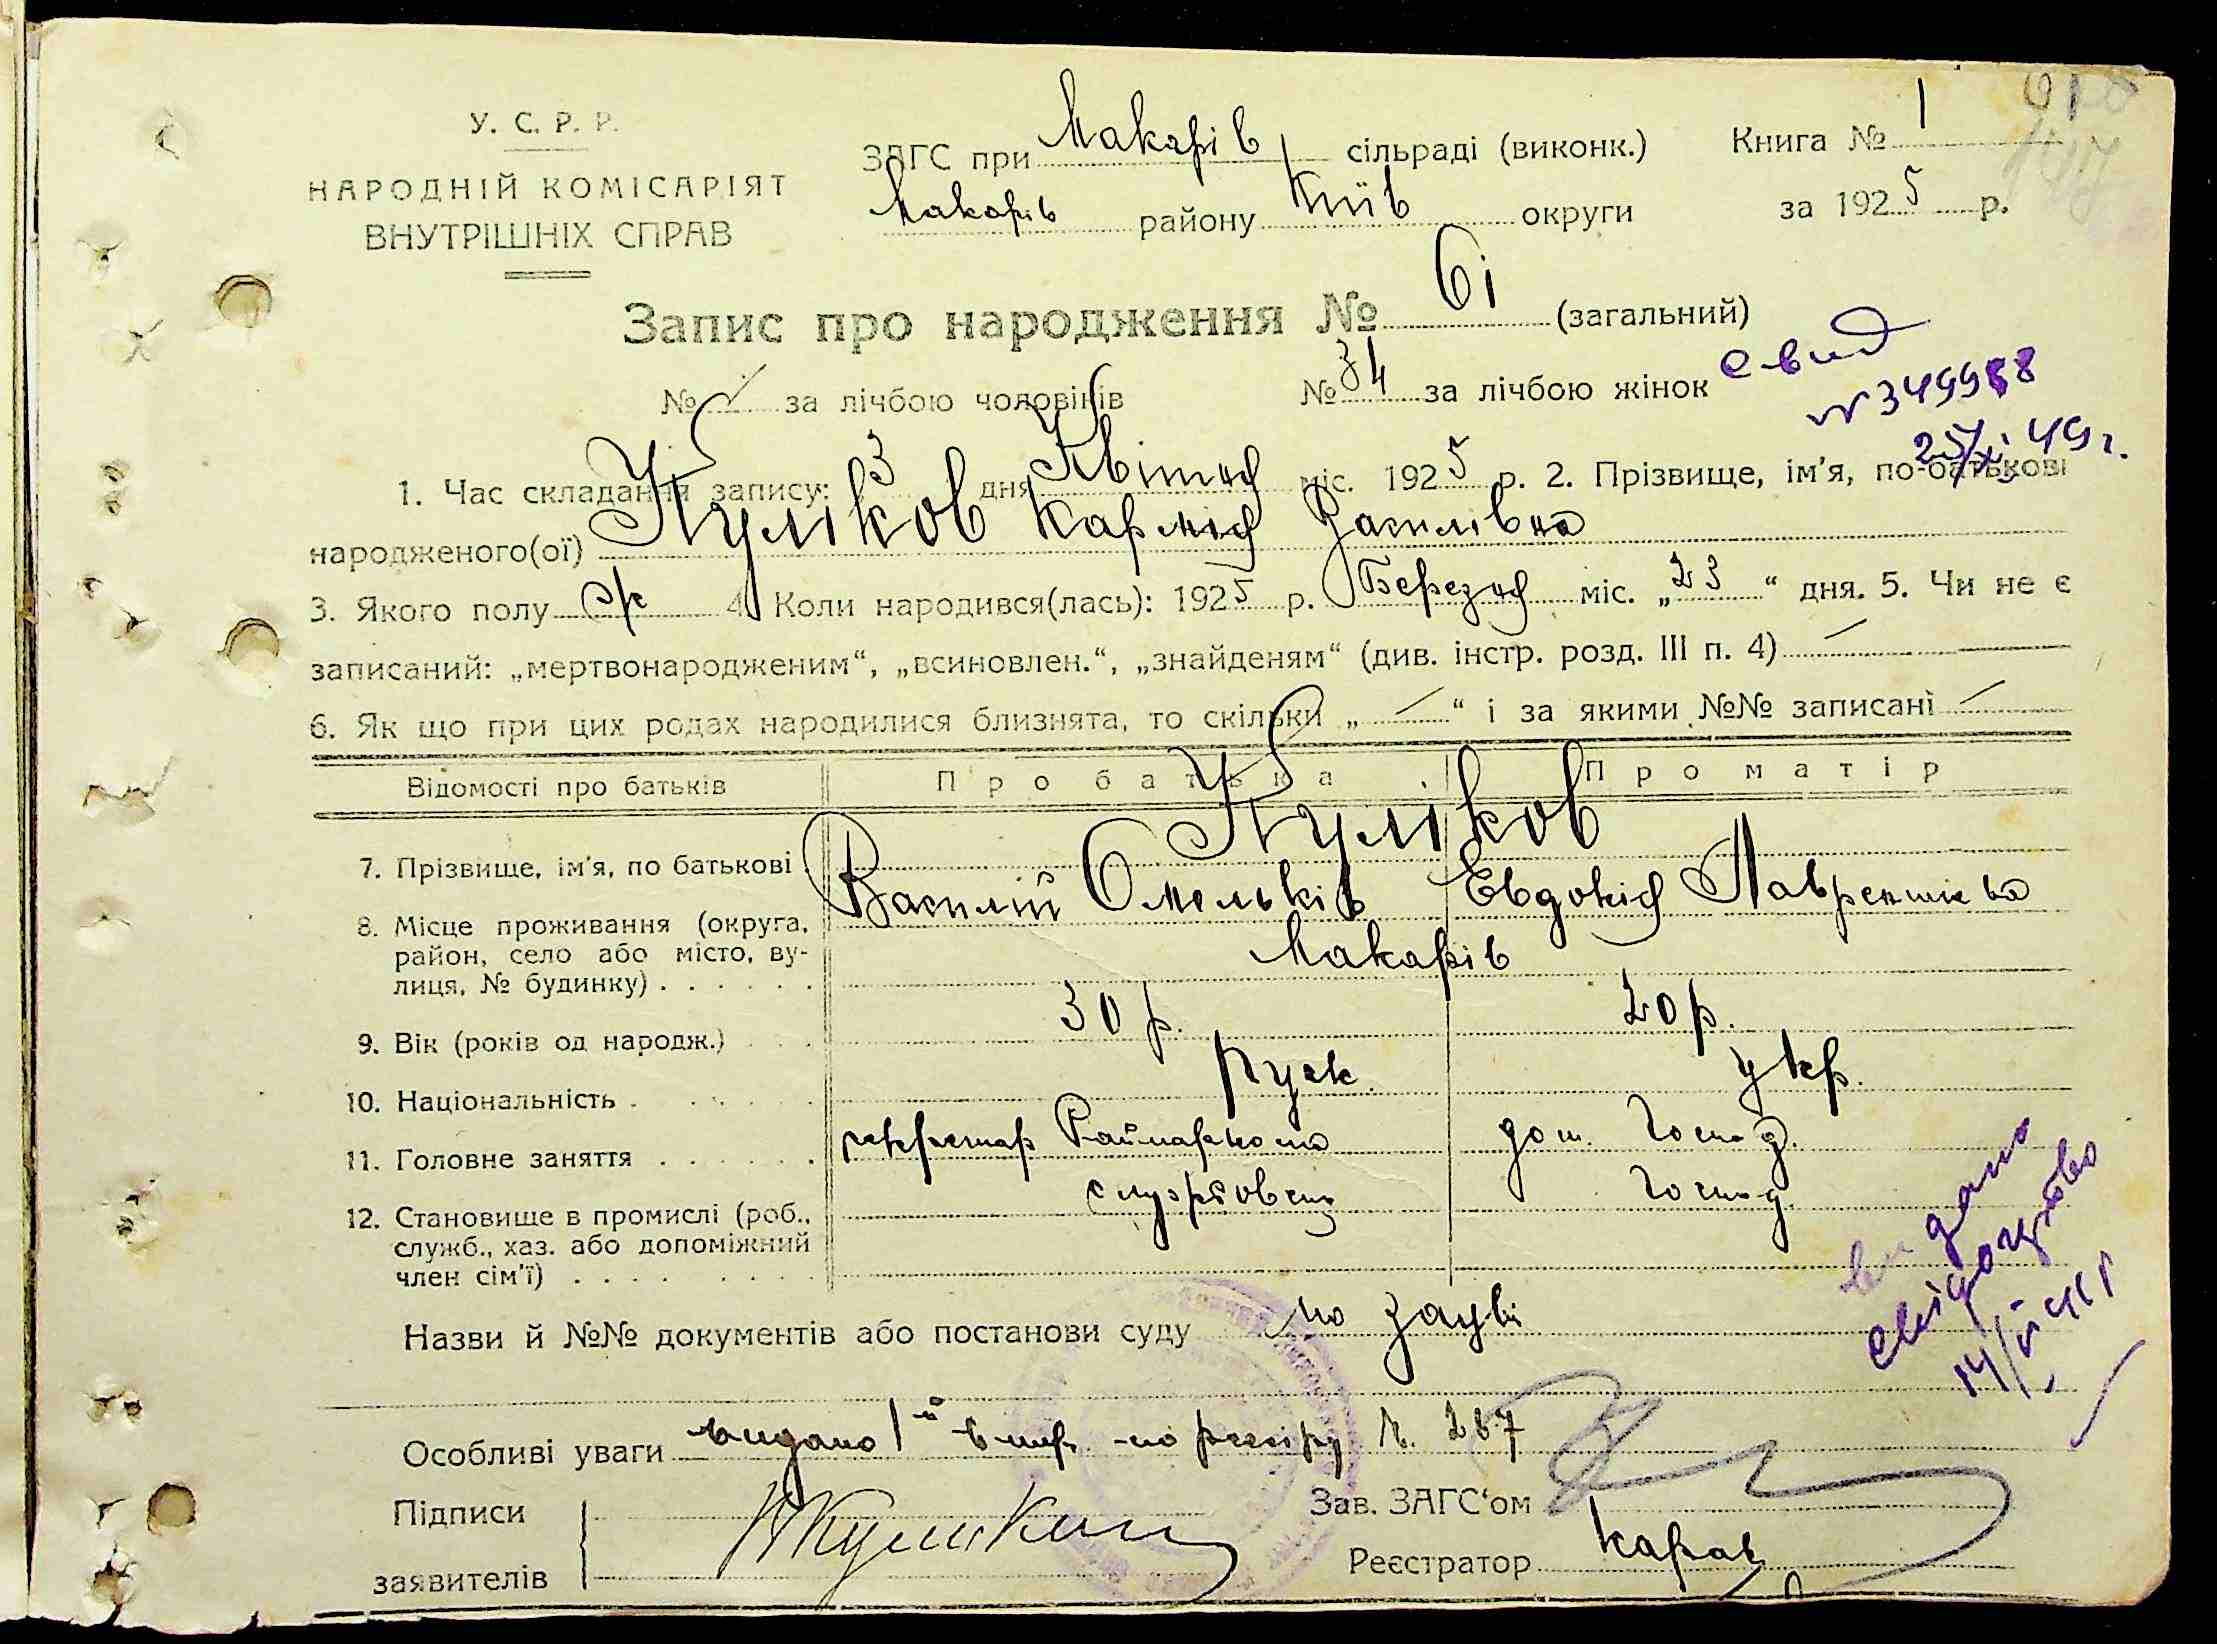 У. С. Р. Р.
НАРОДНІЙ КОМІСАРІЯТ
ВНУТРІШНІХ СПРАВ
ЗАГС при Макарів сільраді (виконк.) Книга № 1
Макарів району Київ округи за 1925 р.
Запис про народження № 61 (загальний)
№ за лічбою чоловіків № 34 за лічбою жінок
свид
№ 349988
25/XI 49 г.
1. Час складання запису: 3 дня Квітня міс. 1925 р. 2. Прізвище, ім'я, по-батькові
народженого(ої) Куліков Кармія Василівна
3. Якого полу ж 4. Коли народився(лась): 1925 р. Березня міс. „23“ дня. 5. Чи не є
записаний: „мертвонародженим“, „всиновлен.“, „знайденям“ (див. інстр. розд. III п. 4) —
6. Як що при цих родах народилися близнята, то скільки „—“ і за якими №№ записані —
Відомості про батьків Про батька Про матір
Куліков
7. Прізвище, ім'я, по батькові Василій Омельків Евдокія Лаврентівна
8. Місце проживання (округа, район, село або місто, вулиця, № будинку) Макарів
9. Вік (років од народж.) 30 р. 20 р.
10. Національність руск. укр.
11. Головне заняття секретар дом. господ.
12. Становище в промислі (роб., служб., хаз. або допоміжний член сім'ї) службовець господ.
видано
свідоцтво
Назви й №№ документів або постанови суду по заяві
Особливі уваги видано 1й випр. по реєстру №. 267
Підписи
заявителів
Зав. ЗАГС'ом
Реєстратор